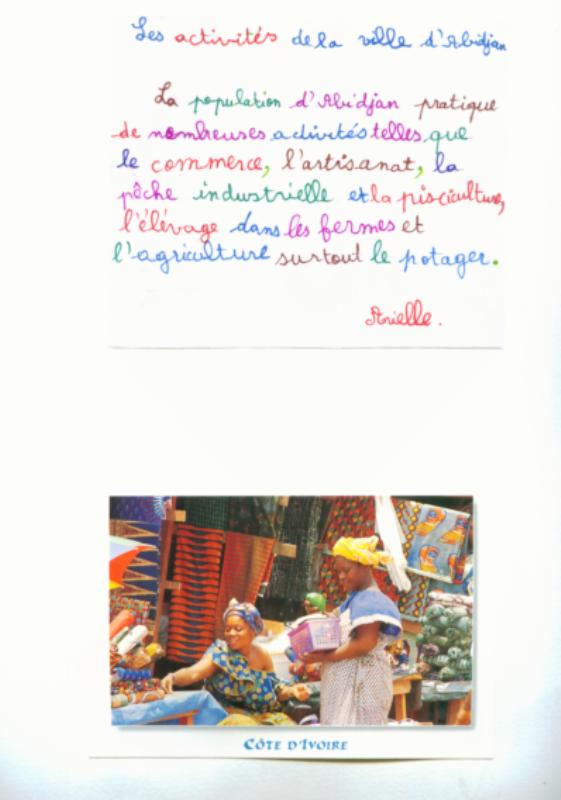 Les activités de la ville d'Abidjan
La population d'Abidjan pratique
de nombreuses activités telles que
le commerce, l'artisanat, la
pêche industrielle et la pisciculture,
l'élévage dans les fermes et
l'agriculture surtout le potager.
Arielle.
CÔTE D'IVOIRE